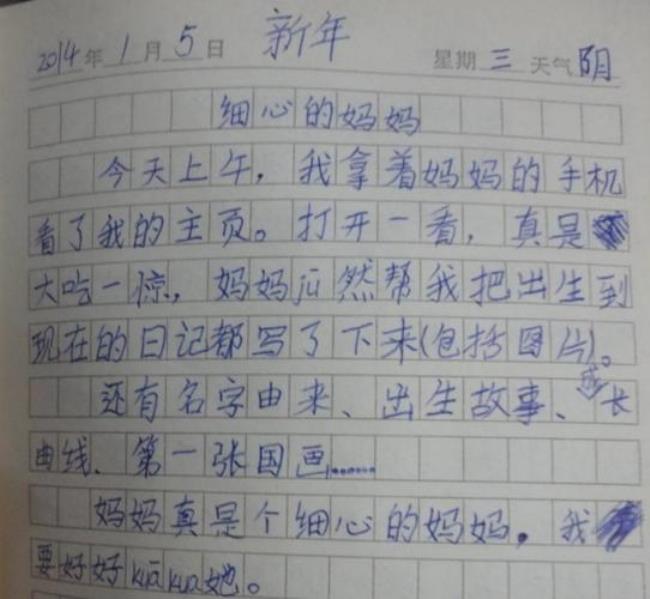 2014年1月5日 新年 星期三 天气阴
细心的妈妈
今天上午，我拿着妈妈的手机
看了我的主页。打开一看，真是
大吃一惊，妈妈jū然帮我把出生到
现在的日记都写了下来(包括图片)。
还有名字由来、出生故事、成长
曲线、第一张国画……
妈妈真是个细心的妈妈。我
要好好kuākua她。